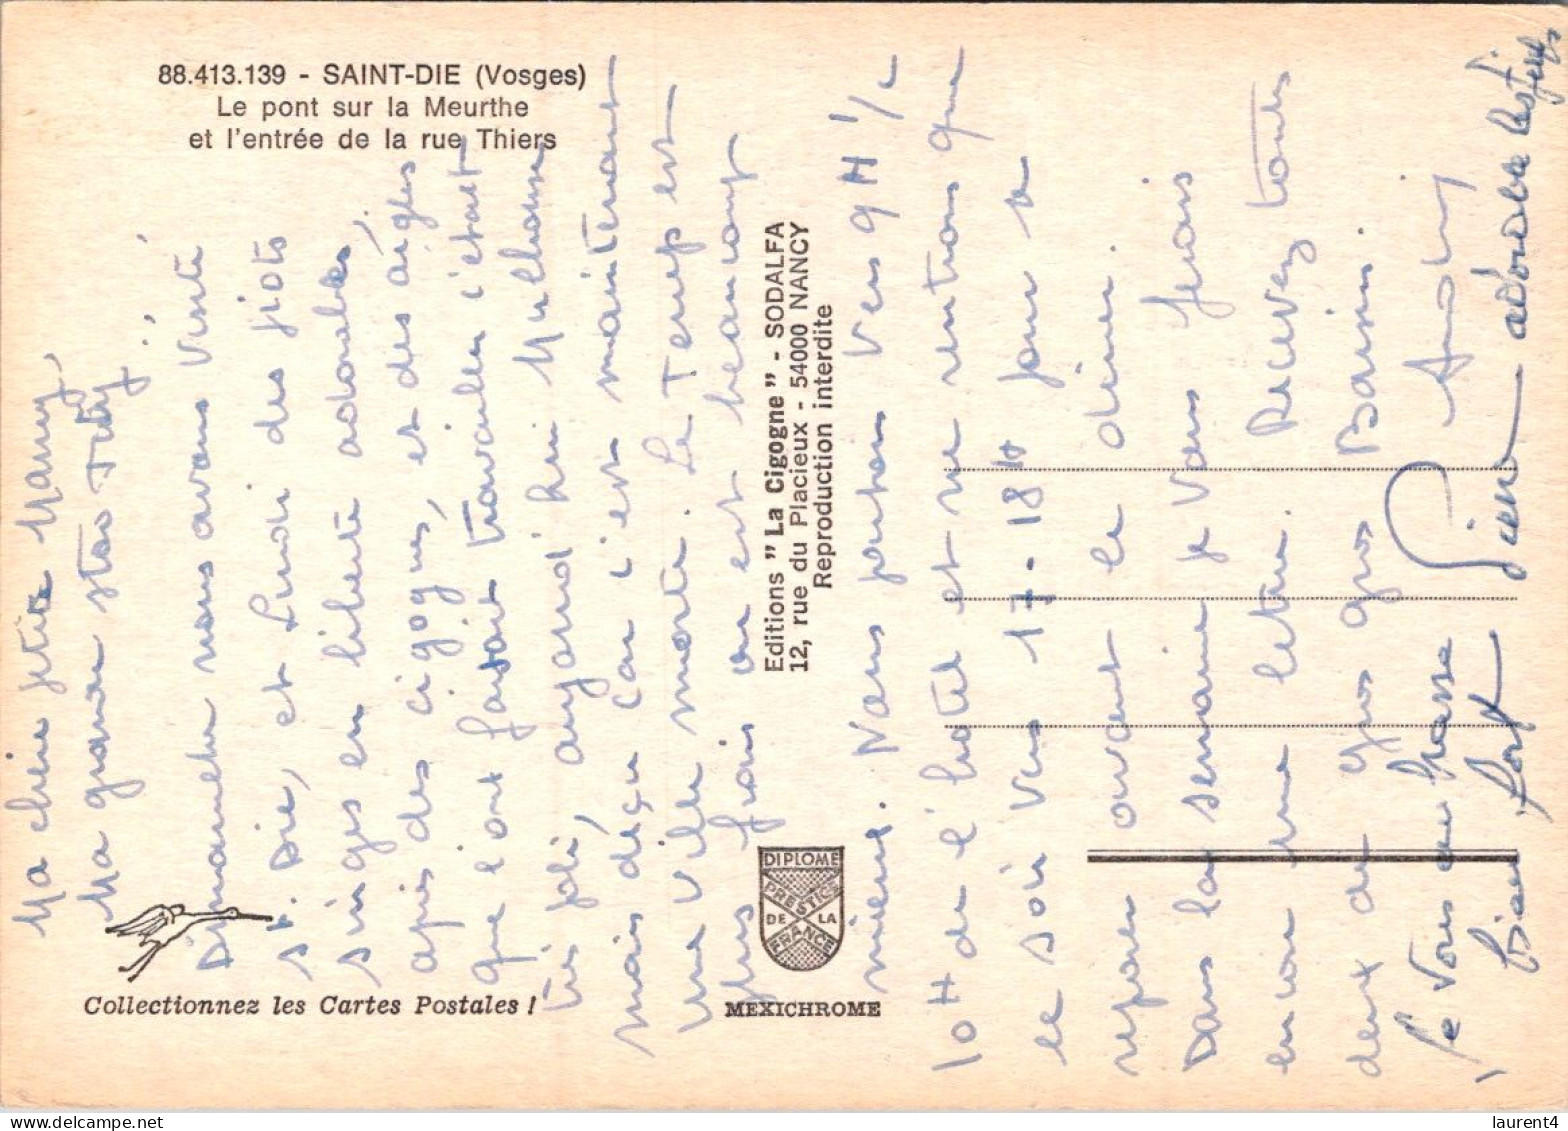 88.413.139 - SAINT-DIE (Vosges)
Le pont sur la Meurthe
et l'entrée de la rue Thiers
Ma chère petite Mamy,
Ma grande star
Dimanche nous avons visité
St. Dié, et Lundi des
singes en liberté adorables,
après des cigognes, et des aigles
que l'ont faisait travailler c'était
très joli, aujourd'hui Mulhouse
mais déçu car c'est maintenant
une ville morte. Le Temps est
plus frais on est beaucoup
mieux. Nous partons vers 9H 1/2
10H de l'hotel et ne rentrons que
le soir vers 17-18H pour se
reposer avant le diner.
Dans la semaine je vous ferais
encore une lettre. Recevez toutes
deux de gros gros Baisers.
André
Je vous embrasse
bien fort Pierre
Editions "La Cigogne" - SODALFA
12, rue du Placieux - 54000 NANCY
Reproduction interdite
DIPLOME
PRESTIGE
DE LA
FRANCE
MEXICHROME
Collectionnez les Cartes Postales !
laurent4